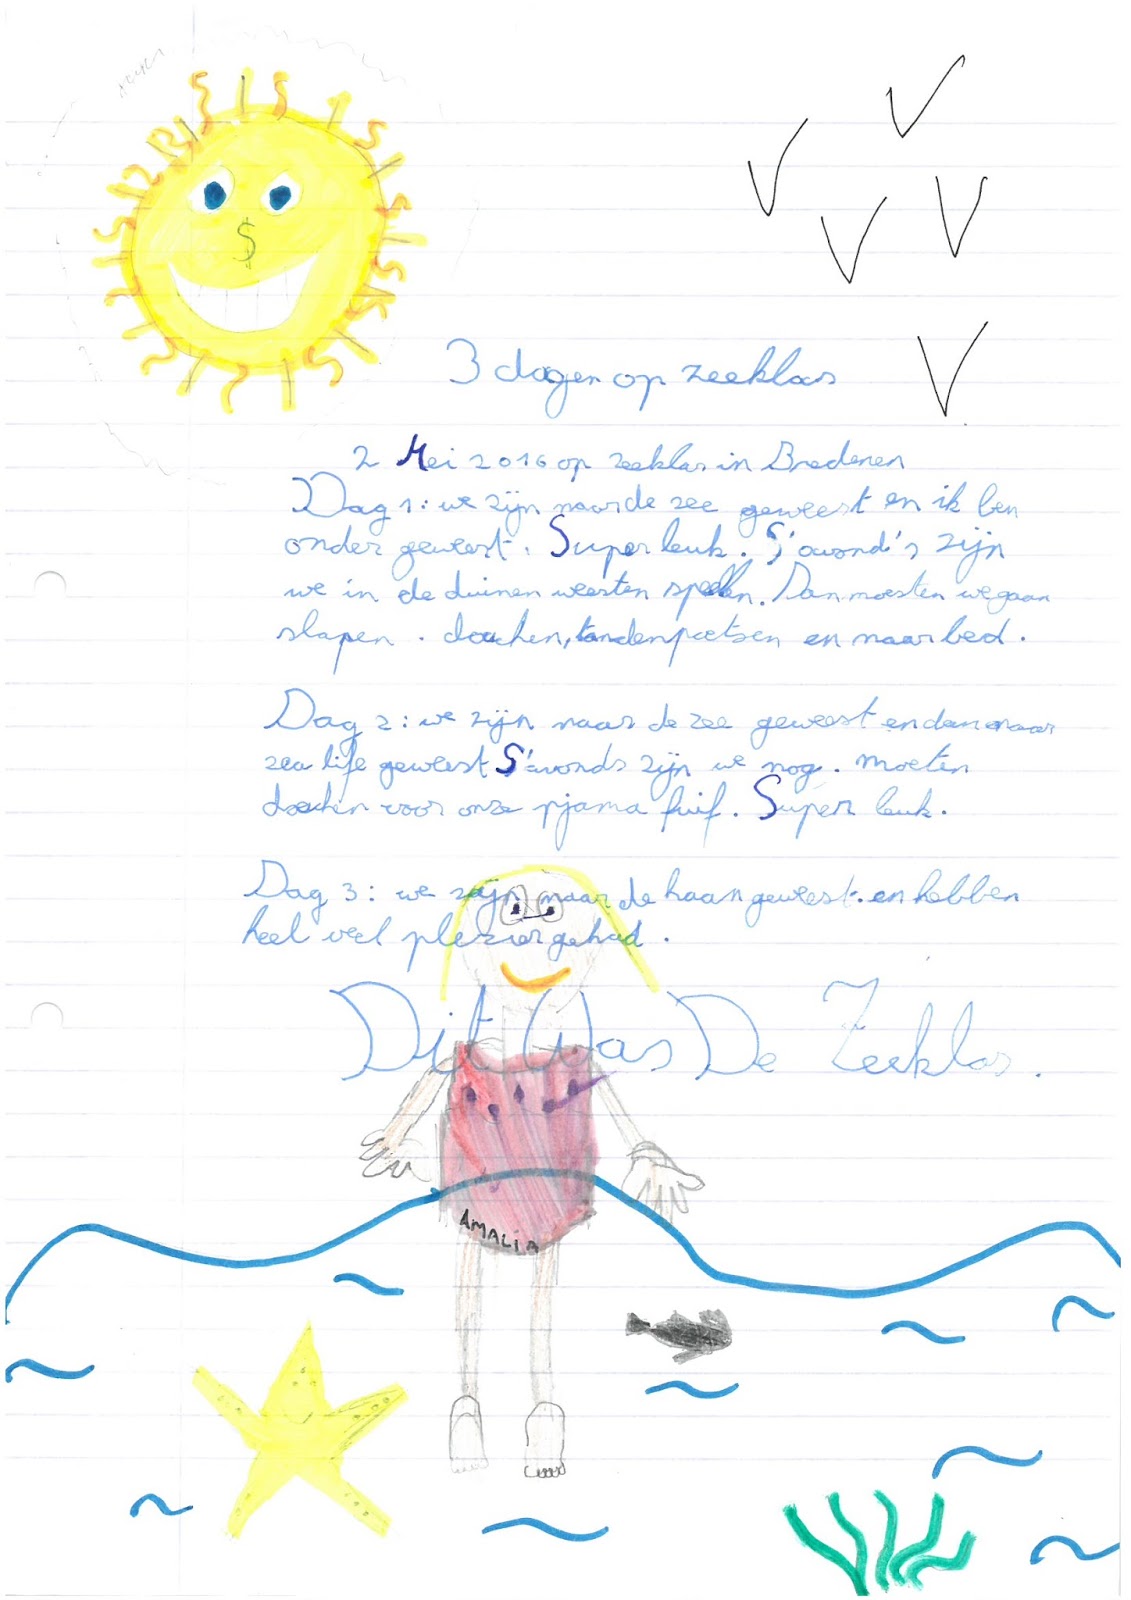 3 dagen op zeeklas
2 Mei 2016 op zeeklas in Bredenen
Dag 1: we zijn naar de zee geweest en ik ben
onder geweest. Super leuk. S'avond's zijn
we in de duinen weesten spellen. Dan moesten we gaan
slapen. douchen, tandenpoetsen en naar bed.
Dag 2: we zijn naar de zee geweest en dan naar
zea life geweest S'avonds zijn we nog. moeten
douchen voor onze pjama fuif. Super leuk.
Dag 3: we zijn naar de haan geweest. en hebben
heel veel plezier gehad.
Dit Was De Zeeklas.
AMALIA